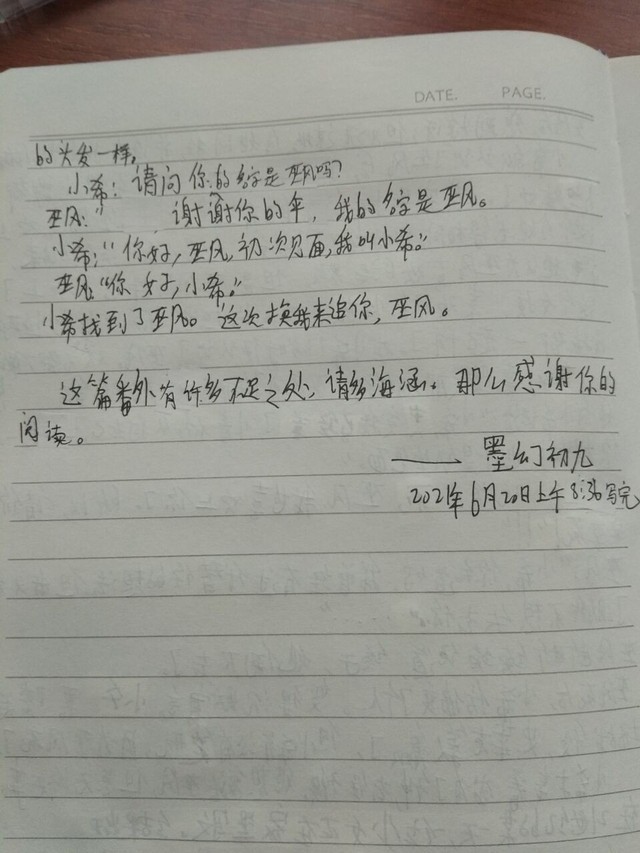 DATE. PAGE.
的头发一样。
小希：请问你的名字是巫风吗？
巫风：“ 谢谢你的伞，我的名字是巫风。
小希：“你好，巫风，初次见面，我叫小希。”
巫风：“你好，小希。”
小希找到了巫风。这次换我来追你，巫风。
这篇番外有许多不足之处，请多海涵。那么感谢你的
阅读。
——墨幻初九
2021年6月20日上午8:36写完